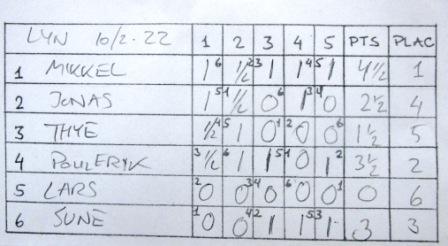 LYN 10/2-22 1 2 3 4 5 PTS PLAC
1 MIKKEL 1 6 ½ 23 1 1 45 1 4½ 1
2 JONAS 1 51 ½ 0 6 1 34 0 2½ 4
3 THYE ½ 45 1 0 1 2 0 0 6 1½ 5
4 POULERYK 3 ½ 6 1 1 51 0 1 2 3½ 2
5 LARS 2 0 0 34 0 6 0 0 1 0 6
6 SUNE 1 0 0 42 1 1 53 1 3 3